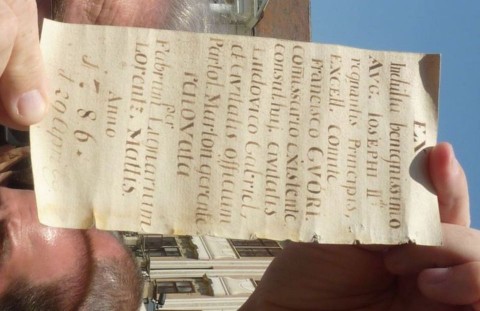 EX
Indultu benignissimo
AVG: IOSEPHI II.di
regnantis Principis,
Excell. Comite
Francisco GVORI,
comissario existente
Consul. hui. civitatis
Ludovico Gabriel,
et civitatis officium
Partol. Marlon gerente
renovata
per
Fabrum Lignarium
Lorenz. Mattis.
Anno
1786.